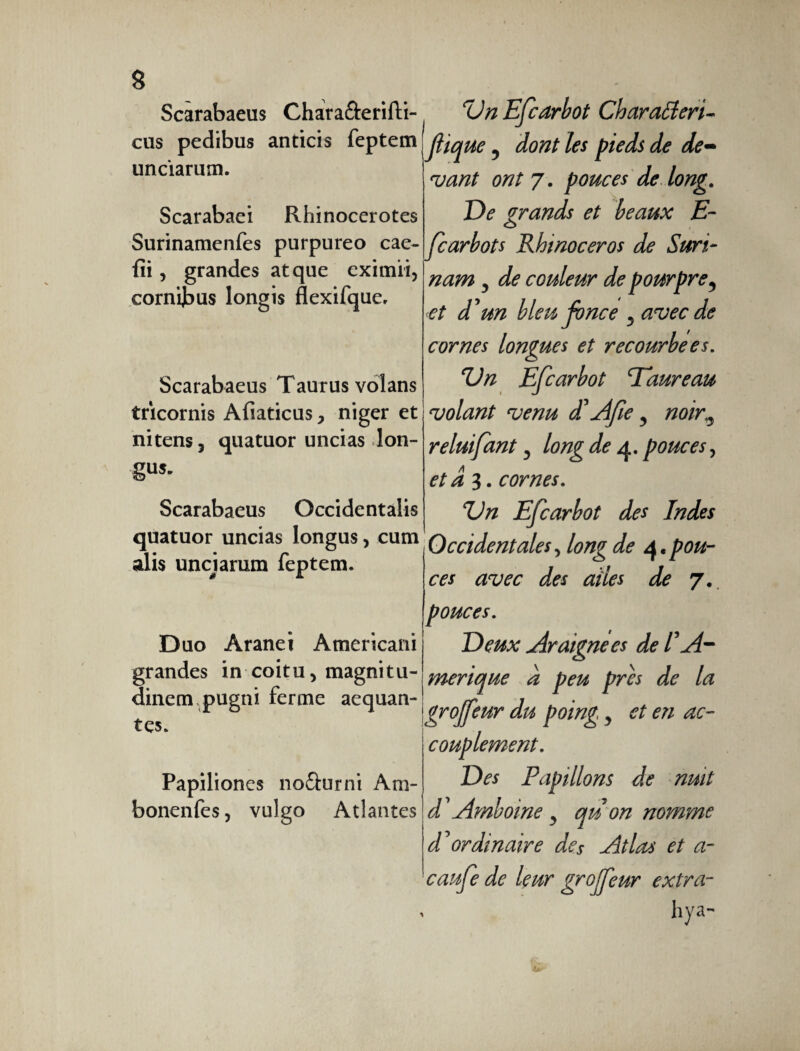 8
Scarabaeus Characterifti-
cus pedibus anticis feptem
unciarum.
Scarabaei Rhinocerotes
Surinamenfes purpureo cae-
fii, grandes atque eximii,
cornibus longis flexifque.
Scarabaeus Taurus volans
tricornis Afiaticus, niger et
nitens, quatuor uncias lon-
gus.
Scarabaeus Occidentalis
quatuor uncias longus, cum
alis unciarum feptem.
Duo Aranei Americani
grandes in coitu, magnitu-
dinem pugni ferme aequan-
tes.
Papiliones nocturni Am-
bonenfes, vulgo Atlantes
Un Efcarbot Characteri-
ftique, dont les pieds de de-
vant ont 7. pouces de long.
De grands et beaux E-
fcarbots Rhinoceros de Suri-
nam, de couleur de pourpre,
et d'un bleu foncé, avec de
cornes longues et recourbées.
Un Efcarbot Taureau
volant venu d'Afie, noir,
reluifant, long de 4. pouces,
et â 3. cornes.
Un Efcarbot des Indes
Occidentales, long de 4. pou-
ces avec des ailes de 7.
pouces.
Deux Araignées de l'A-
merique à peu près de la
groffeur du poing, et en ac-
couplement.
Des Papillons de nuit
d'Amboine, qu'on nomme
d'ordinaire des Atlas et a-
caufe de leur groffeur extra-
hya-